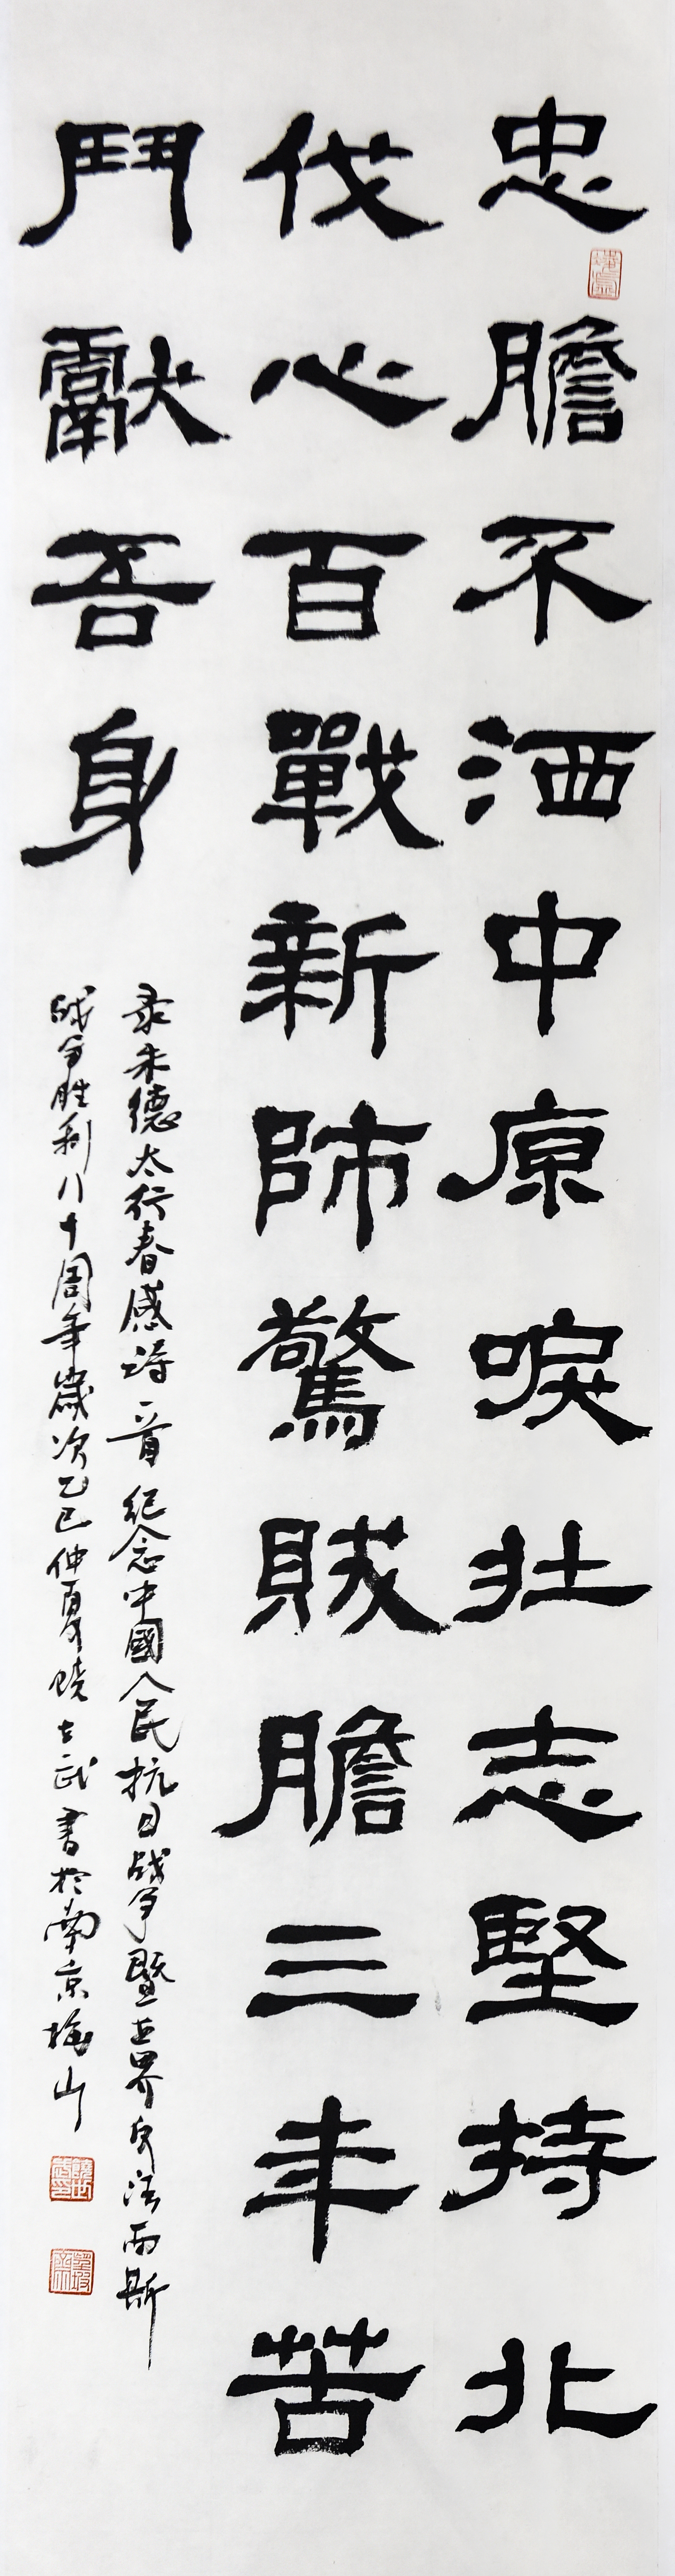 忠膽不洒中原淚壯志堅持北
伐心百戰新師驚賊膽三年苦
鬥獻吾身
录朱德太行春感诗一首纪念中國人民抗日战争暨世界反法西斯
战争胜利八十周年歲次乙巳仲夏饒士武書於南京梅山